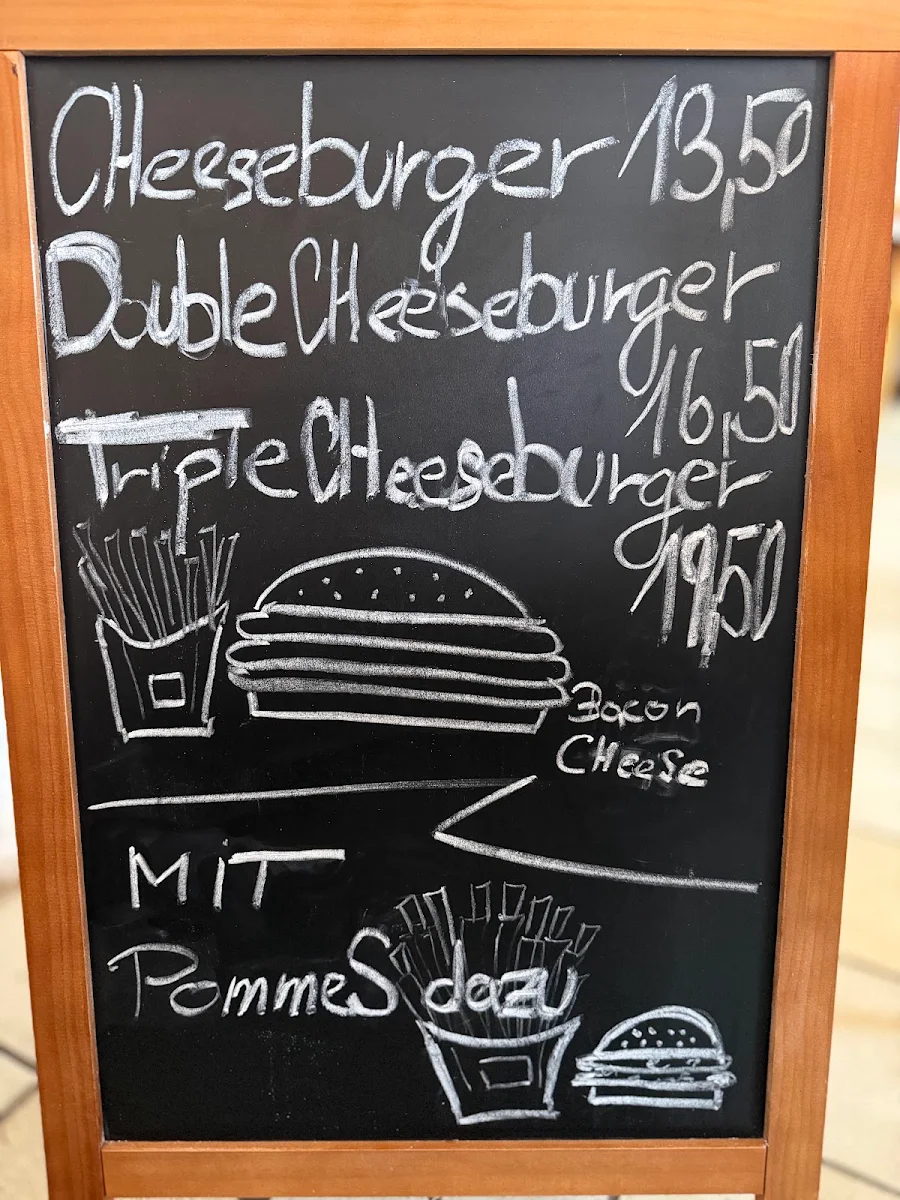 CHeeseburger 13,50
Double CHeeseburger
16,50
Triple CHeeseburger
19,50
Bacon
CHeese
MiT
PommeS dazu